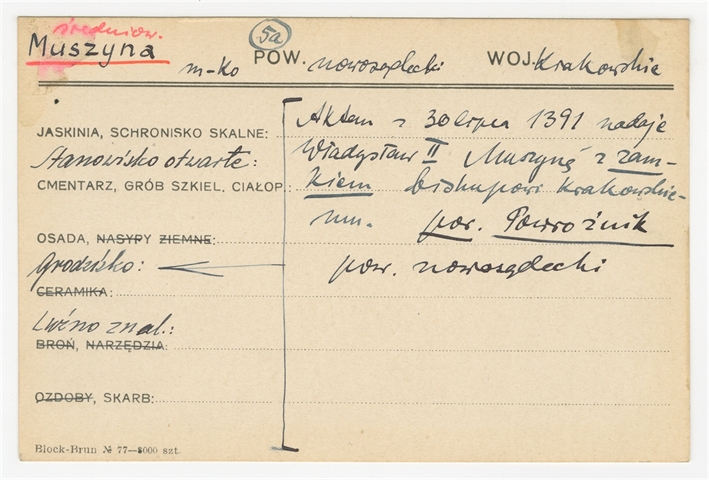 średniow.
Muszyna
5a
m-ko POW. nowosądecki WOJ. Krakowskie
JASKINIA, SCHRONISKO SKALNE:
Stanowisko otwarte:
CMENTARZ, GRÓB SZKIEL. CIAŁOP.:
OSADA, NASYPY ZIEMNE:
grodzisko:
CERAMIKA:
Luźno znal.:
BROŃ, NARZĘDZIA:
OZDOBY, SKARB:
Aktem z 30 lipca 1391 nadaje
Władysław II Muszynę z zam-
kiem biskupowi krakowskie-
mu. por. Powroźnik
pow. nowosądecki
Block-Brun № 77—8000 szt.